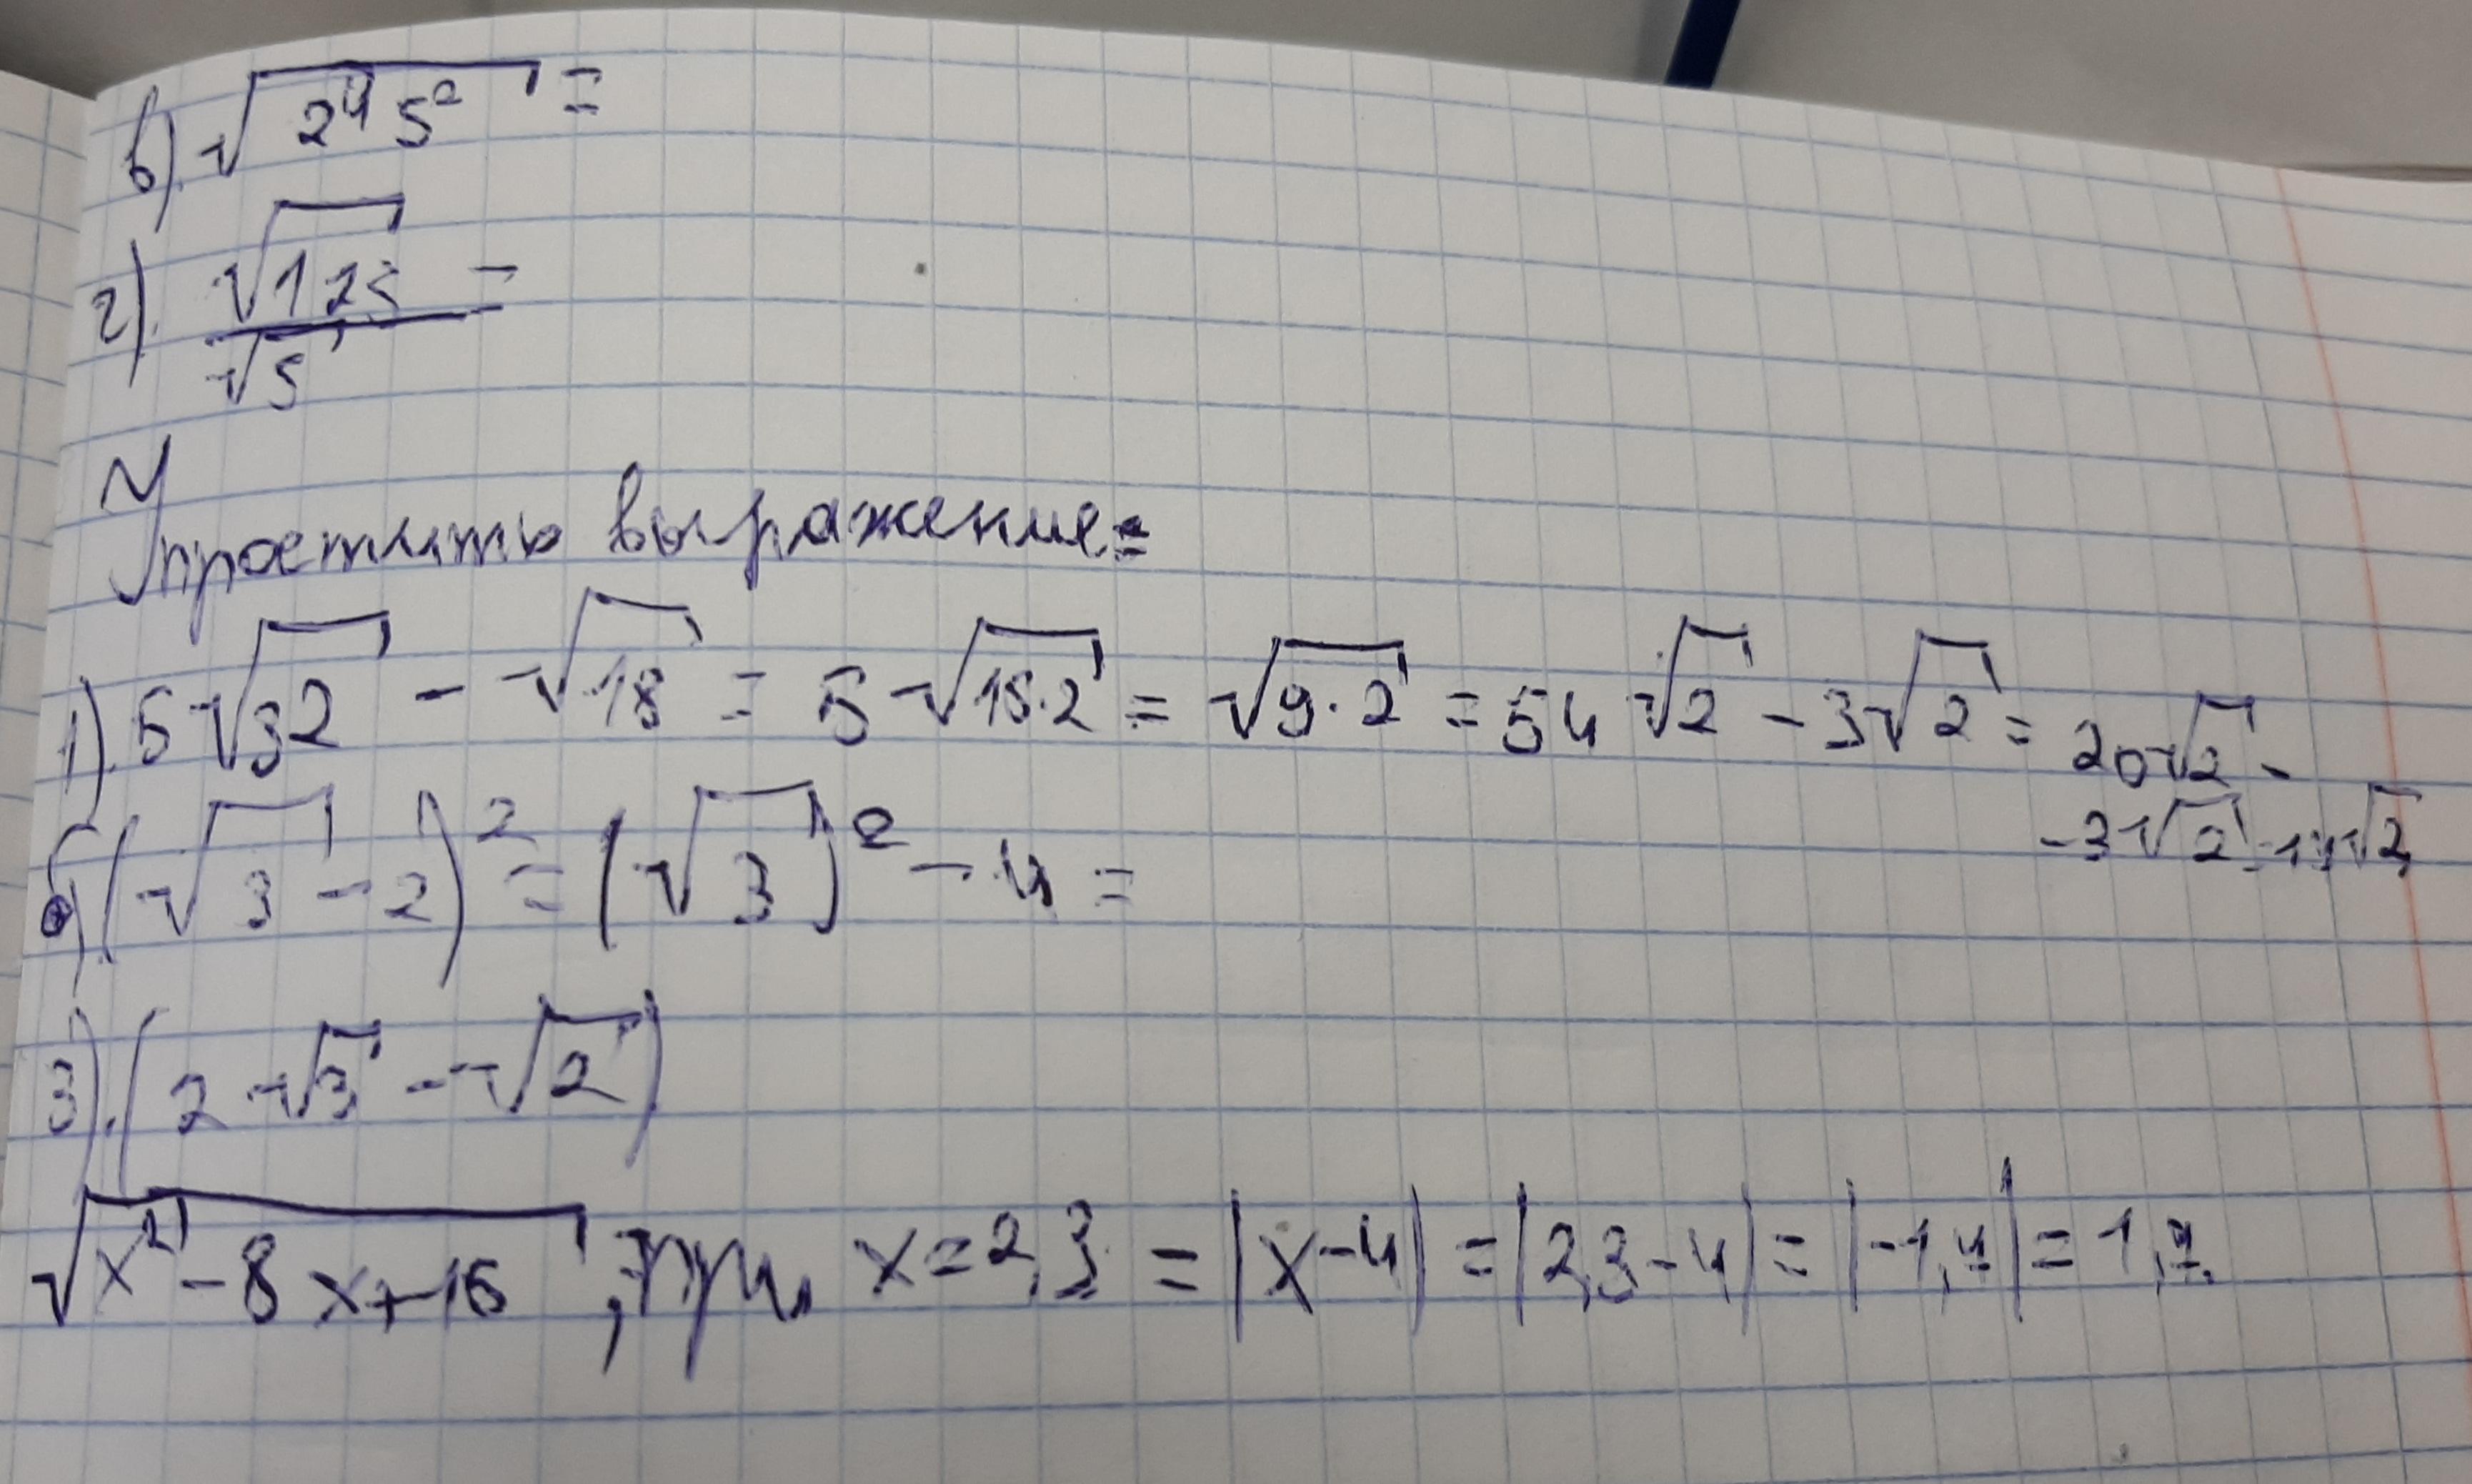 в). √2⁴5² =
г). √125/√5 =
Упростить выражение:
1). 5√32 - √18 = 5√16·2 = √9·2 = 54√2 - 3√2 = 20√2 -
- 3√2 = 17√2
(√3 - 2)² = (√3)² - 4 =
3). (2√3 - √2)
√x² - 8x + 16, при x = 2,3 = |x - 4| = |2,3 - 4| = |-1,7| = 1,7.